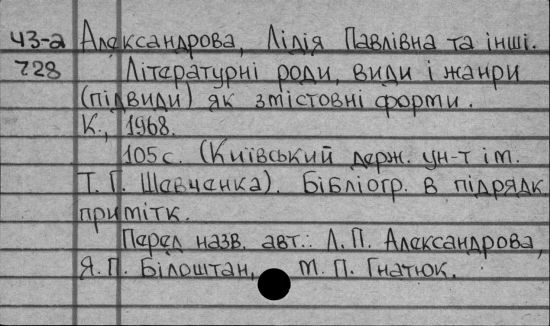 43-а Александрова, Лідія Павлівна та інші.
728 Літературні роди, види і жанри
(підвиди) як змістовні форми.
К., 1968.
105с. (Київський держ. ун-т ім.
Т. Г. Шевченка). Бібліогр. в підрядк.
примітк.
Перед назв. авт.: Л. П. Александрова,
Я. П. Білоштан, М. П. Гнатюк.